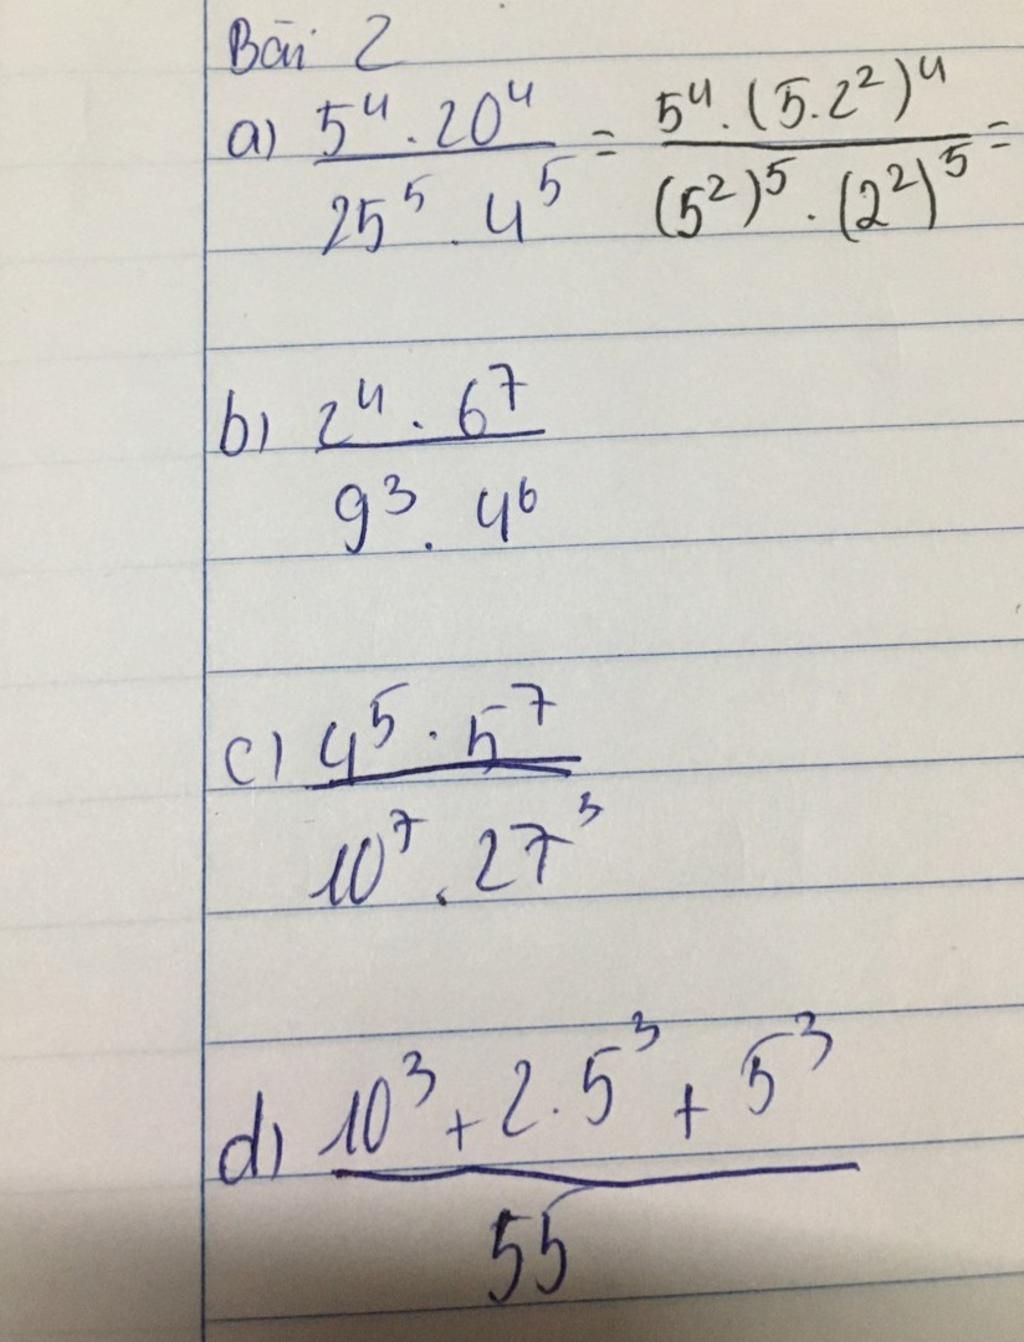 Bài 2
a) 5⁴ . 20⁴ / 25⁵ . 4⁵ = 5⁴ . (5.2²)⁴ / (5²)⁵ . (2²)⁵ =
b) 2⁴ . 6⁷ / 9³ . 4⁶
c) 4⁵ . 5⁷ / 10⁷ . 27³
d) 10³ + 2.5³ + 5³ / 55